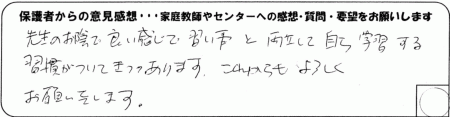 保護者からの意見感想・・・家庭教師やセンターへの感想・質問・要望をお願いします
先生のお陰で良い感じで習い事と両立して自ら学習する
習慣がついてきつつあります。これからもよろしく
お願いをします。